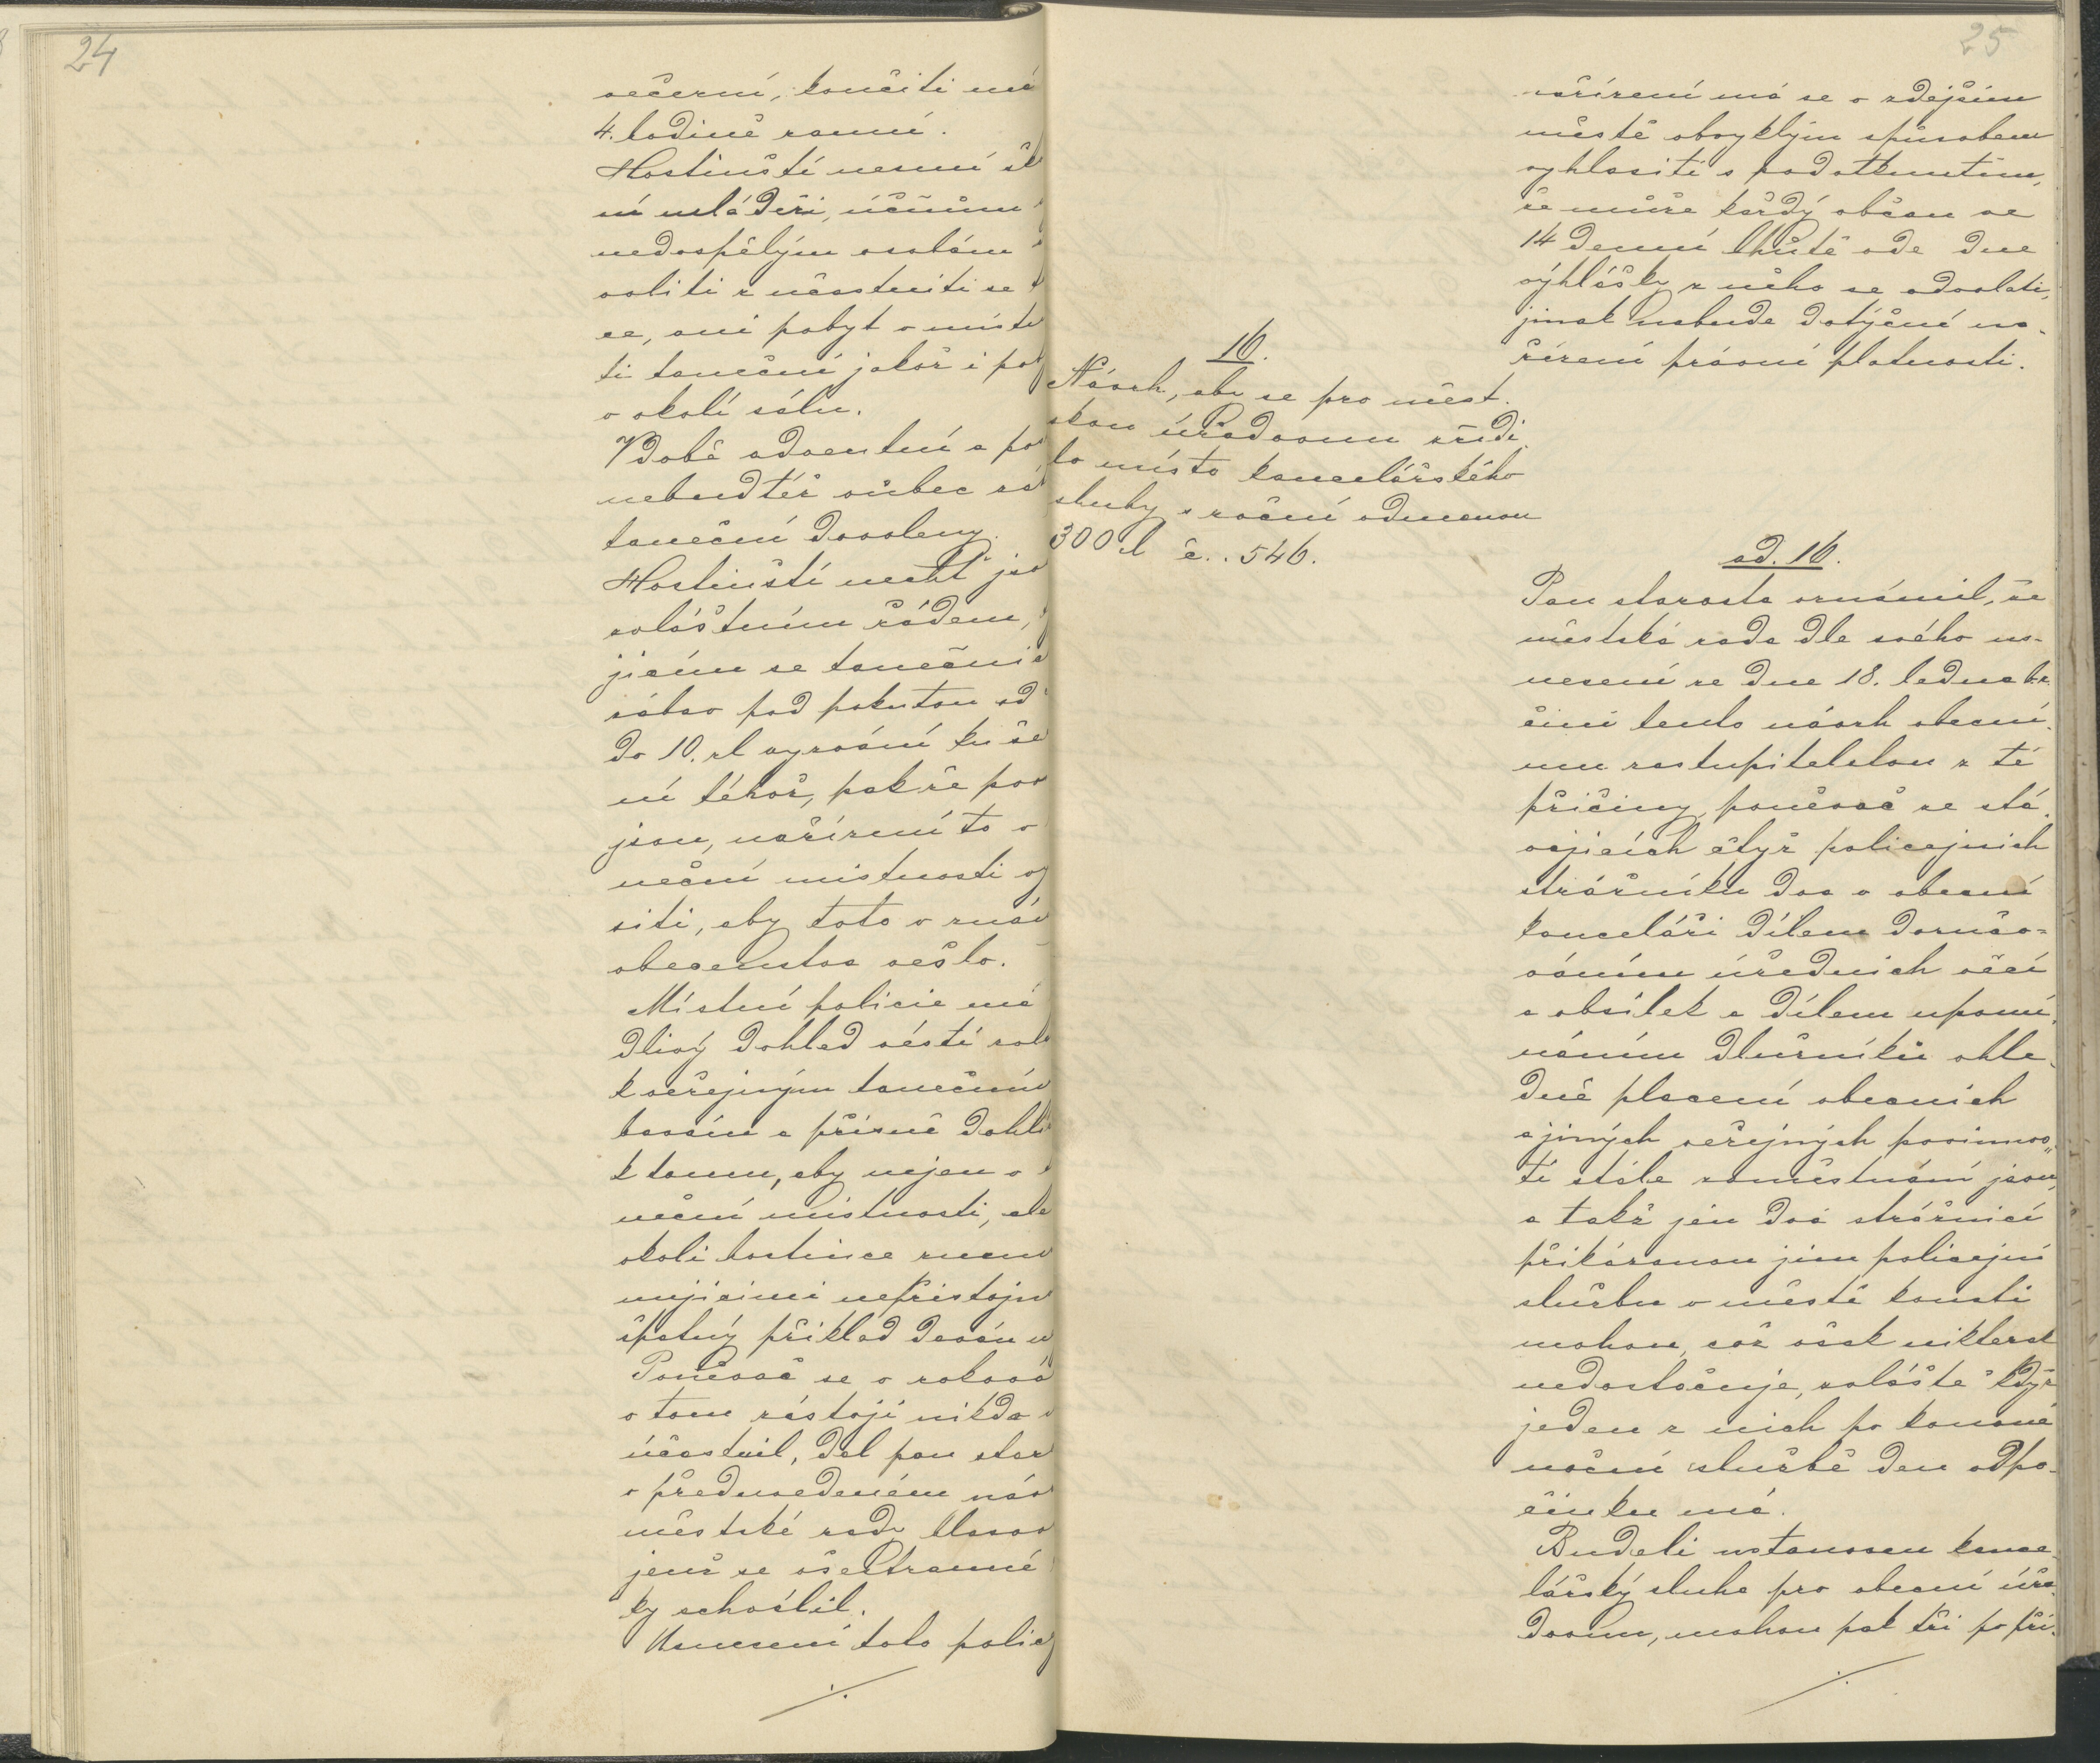 24
večerní, končiti má
4. hodině ranní.
Hostinští nesmí šk
ní mládeži, učňům
nedospělým osobám
voliti súčastniti se t
ce, ani pobyt v míst
ti taneční jakož i po
v okolí sálu.
V době adventní a po
nebudtéž vůbec zá
taneční dovoleny.
Hostinští nechť jso
zvláštním řádem,
jícím se tanečních
zábav pod pokutou od
do 10. zl vyzváni ku še
ní téhož, pak že pov
jsou, nařízení to v
neční místnosti vy
siti, aby toto v zná
obecenstva vešlo.
Místní policie má
dlivý dohled vésti
k veřejným tanečním
bavám a přísně dohlí
k tomu, aby nejen v
neční místnosti, ale
okolí hostince
mijícími nepřístojn
špatný příklad dáván
Poněvač se v roková
o tom zástoji nikdo
účastnil, dal pan star
o předuvedeném náv
městské rady hlasov
jenž se všestranně
ky schválil.
Usnesení toto polic
./.
25
nařízení má se v zdejším
městě obvyklým spůsobem
vyhlasiti s podotknutím,
že může každý občan ve
14 denní lhůtě ode dne
výhlášky z něho se odvolati,
jinak nabude dotýčné na-
řízení právní platnosti.
16.
Návrh, aby se pro měst.
skou úřadovnu zřídi
lo místo kancelářského
sluhy s roční odměnou
300 zl č. . 546.
ad. 16.
Pan starosta oznámil, že
městská rada dle svého us-
nesení ze dne 18. ledna t.r.
činí tento návrh obecní-
mu zastupitelstvu z té
příčiny, poněvač ze stá-
vajících čtyř policejních
strážníku dva v obecní
kanceláři dílem doručo=
váním úředních věcí
a obsílek a dílem upomí-
náním dlužníků ohle-
dně placení obecních
a jiných veřejných povinnos„
tí stále zaměstnáni jsou,
a takž jen dva strážníci
přikázanou jim policejní
službu v městě konati
mohou, což však nikterak
nedostačuje, zvláště když
jeden z nich po konané
noční službě den odpo-
činku má.
Budeli ustanoven kance-
lářský sluha pro obecní úřa-
dovnu, mohou pak tři po při-
./.